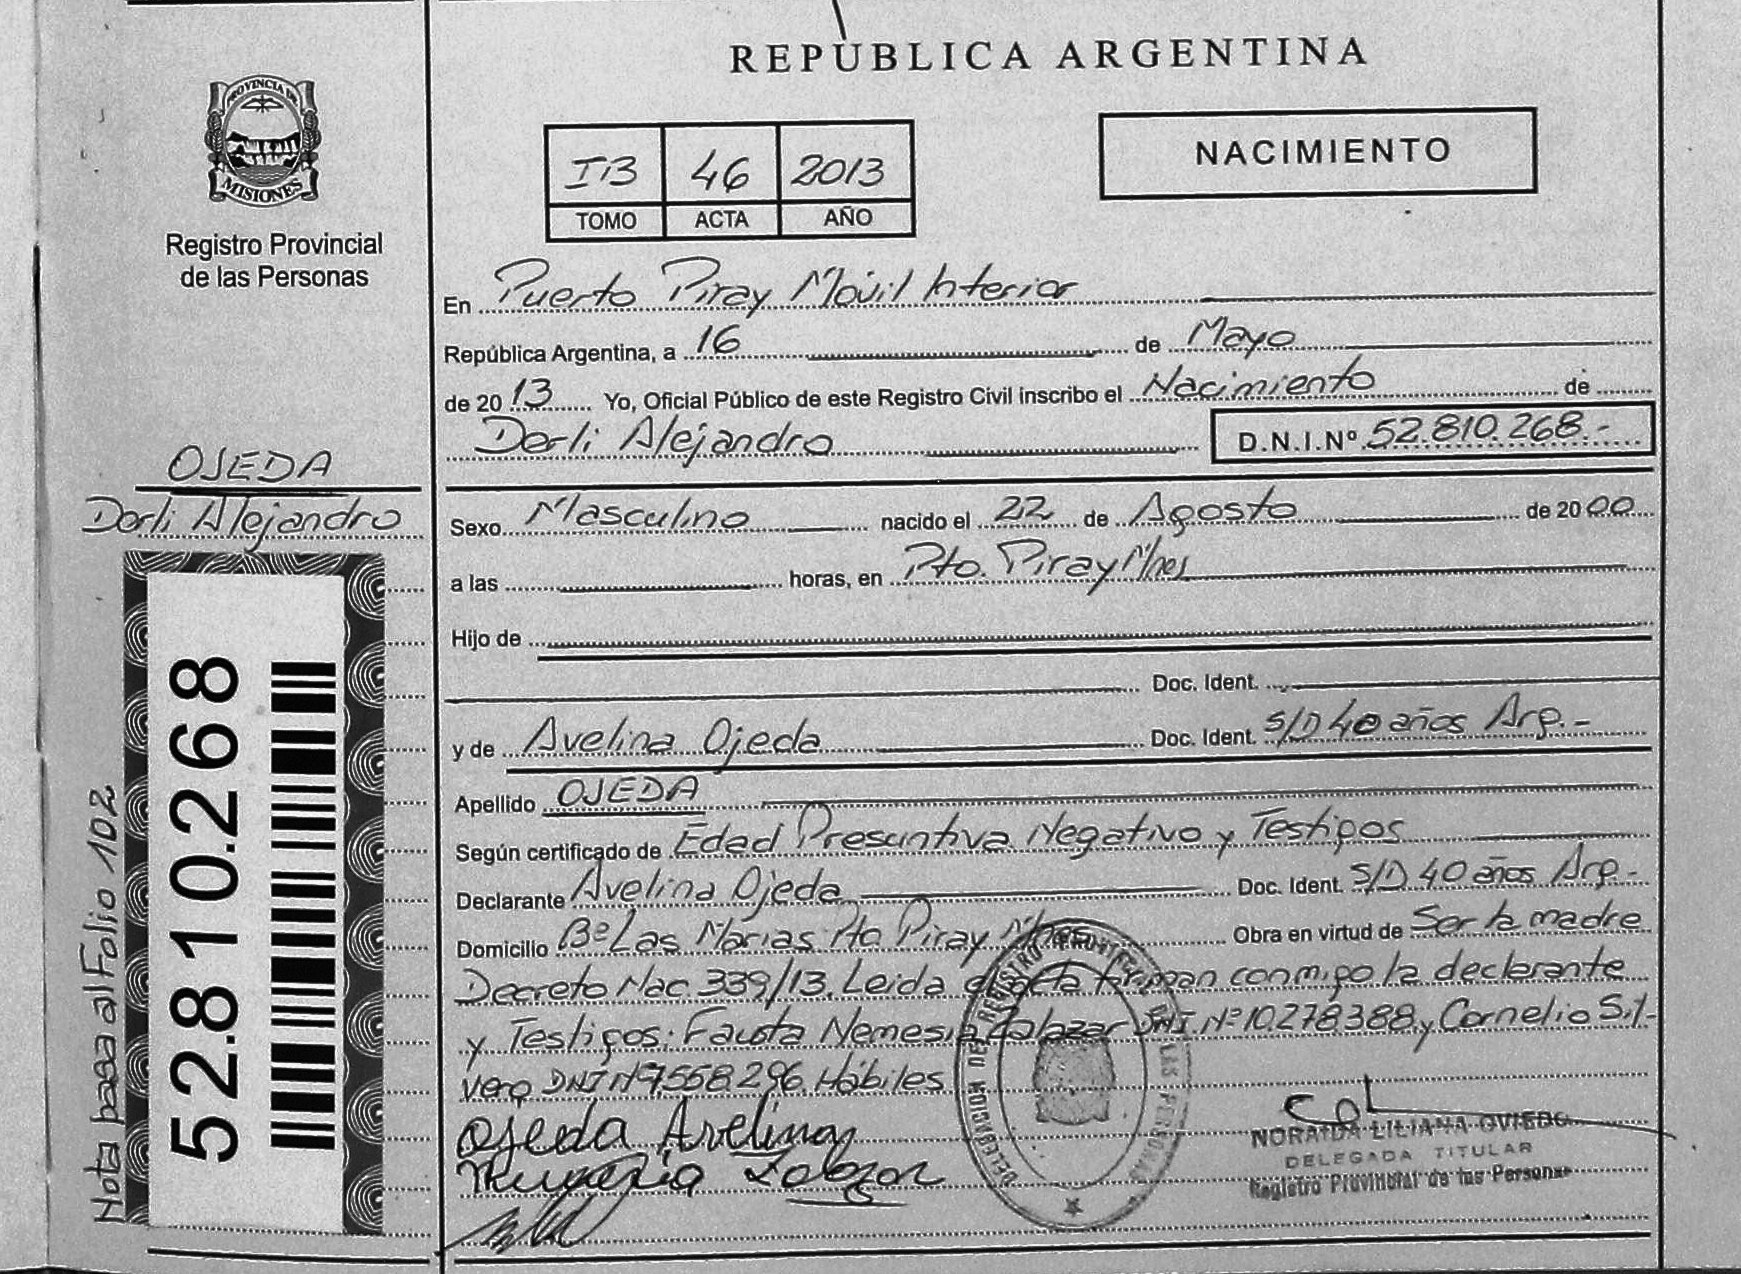 REPÚBLICA ARGENTINA
PROVINCIA DE
MISIONES
Registro Provincial
de las Personas
I B 46 2013
TOMO ACTA AÑO
NACIMIENTO
En Puerto Piray Móvil Interior
República Argentina, a 16 de Mayo
de 2013 Yo, Oficial Público de este Registro Civil inscribo el Nacimiento de
Derli Alejandro D.N.I.Nº 52.810.268.-
OJEDA
Derli Alejandro
52.810.268
Nota pasa al Folio 102
Sexo Masculino nacido el 22 de Agosto de 2000
a las horas, en Pto. Piray Mnes
Hijo de
Doc. Ident.
y de Avelina Ojeda Doc. Ident. S/D 40 años Arg.-
Apellido OJEDA
Según certificado de Edad Presuntiva Negativo y Testigos
Declarante Avelina Ojeda Doc. Ident. S/D 40 años Arg.-
Domicilio Bº Las Marias Pto Piray Mnes Obra en virtud de Ser la madre
Decreto Nac. 339/13. Leida el acta firman conmigo la declarante
y Testigos: Fausta Nemesia Zalazar DNI Nº 10.278.388 y Cornelio Sil-
vero DNI Nº 7.558.296. Hábiles
Ojeda Avelina
NORAIDA LILIANA OVIEDO
DELEGADA TITULAR
Registro Provincial de las Personas